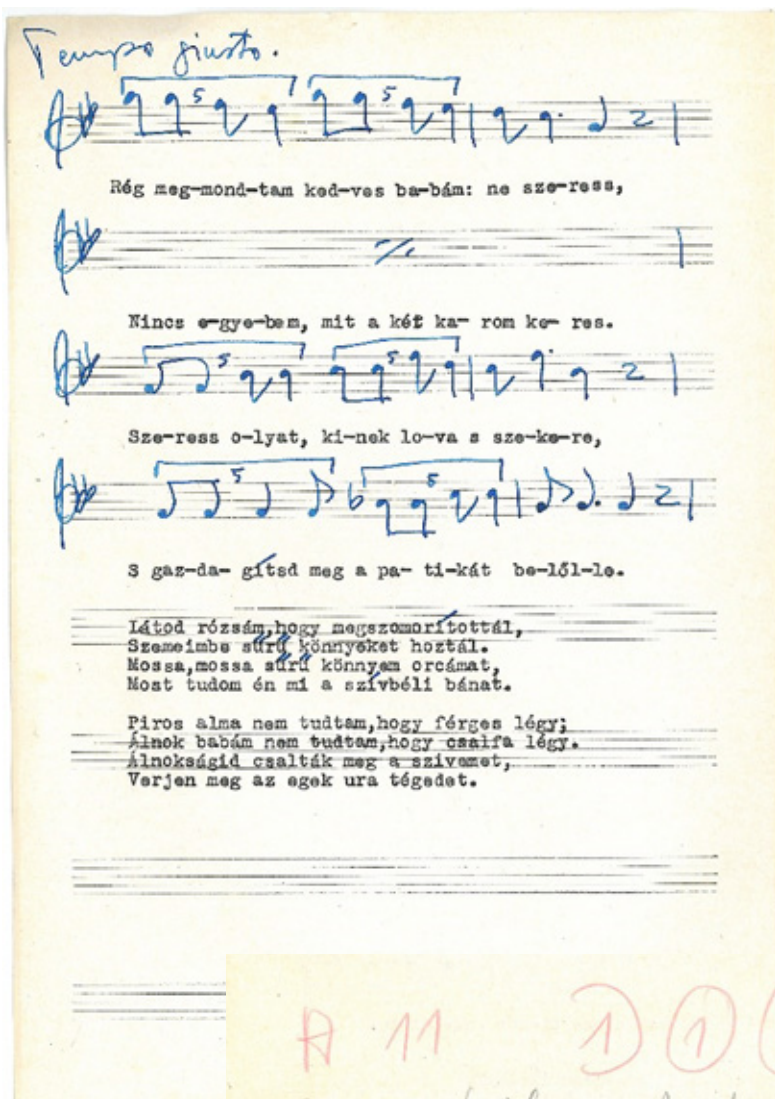 Tempo giusto.
5 5
Rég meg-mond-tam ked-ves ba-bám: ne sze-ress,
Nincs e-gye-bem, mit a két ka- rom ke- res.
5 5
Sze-ress o-lyat, ki-nek lo-va s sze-ke-re,
5 5
S gaz-da- gítsd meg a pa- ti-kát be-lől-le.
Látod rózsám,hogy megszomorítottál,
Szemeimbe sűrű könnyeket hoztál.
Mossa,mossa sűrű könnyem orcámat,
Most tudom én mi a szívbéli bánat.
Piros alma nem tudtam,hogy férges légy;
Álnok babám nem tudtam,hogy csalfa légy.
Álnokságid csalták meg a szivemet,
Verjen meg az egek ura tégedet.
A 11 1) 1